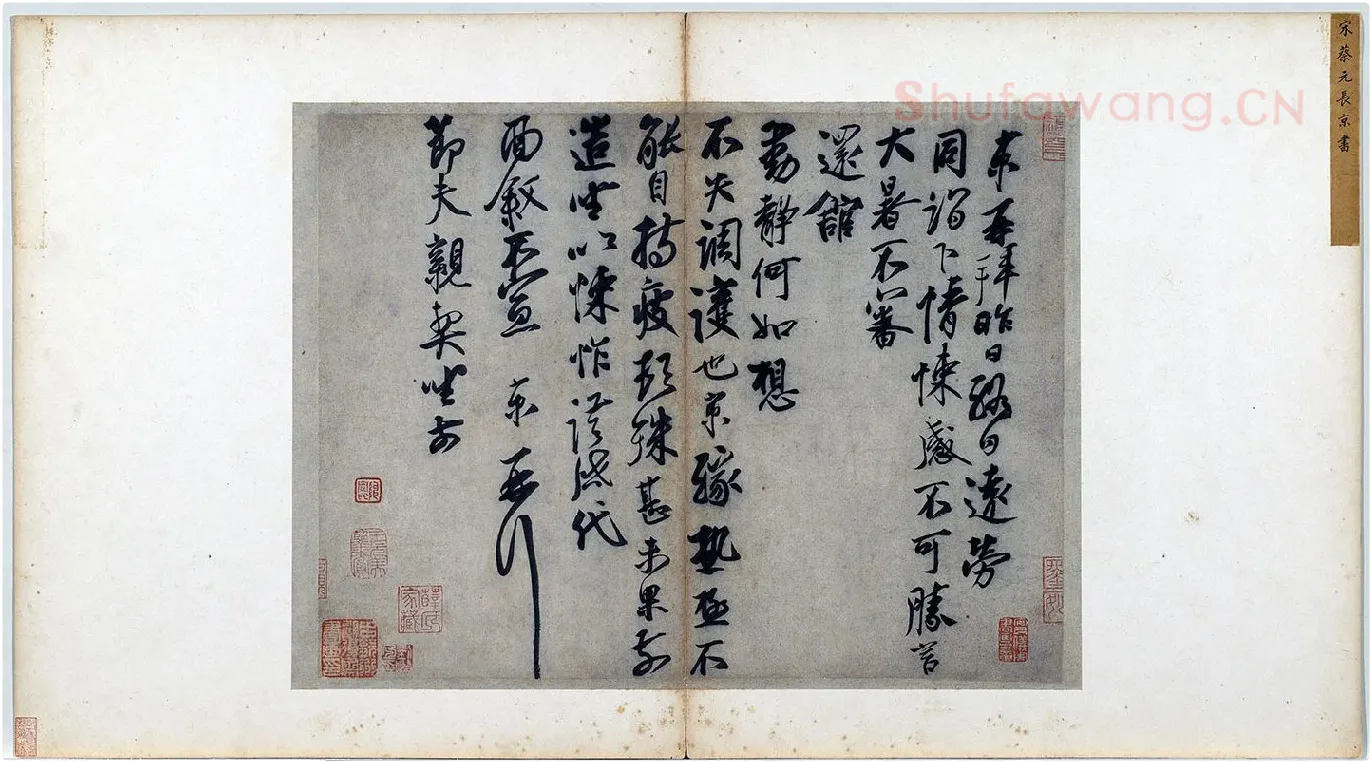 Shufawang.CN
宋蔡元長京書
京再拜昨日終日遠勞
同詣下情悚感不可勝言
大暑不審
還館
動靜何如想
不失調護也京緣熱極不
能自持疲頓殊甚未果前
造坐以悚怍謹啓代
面敘不宣 京再拜
節夫親契坐前
薛氏家藏